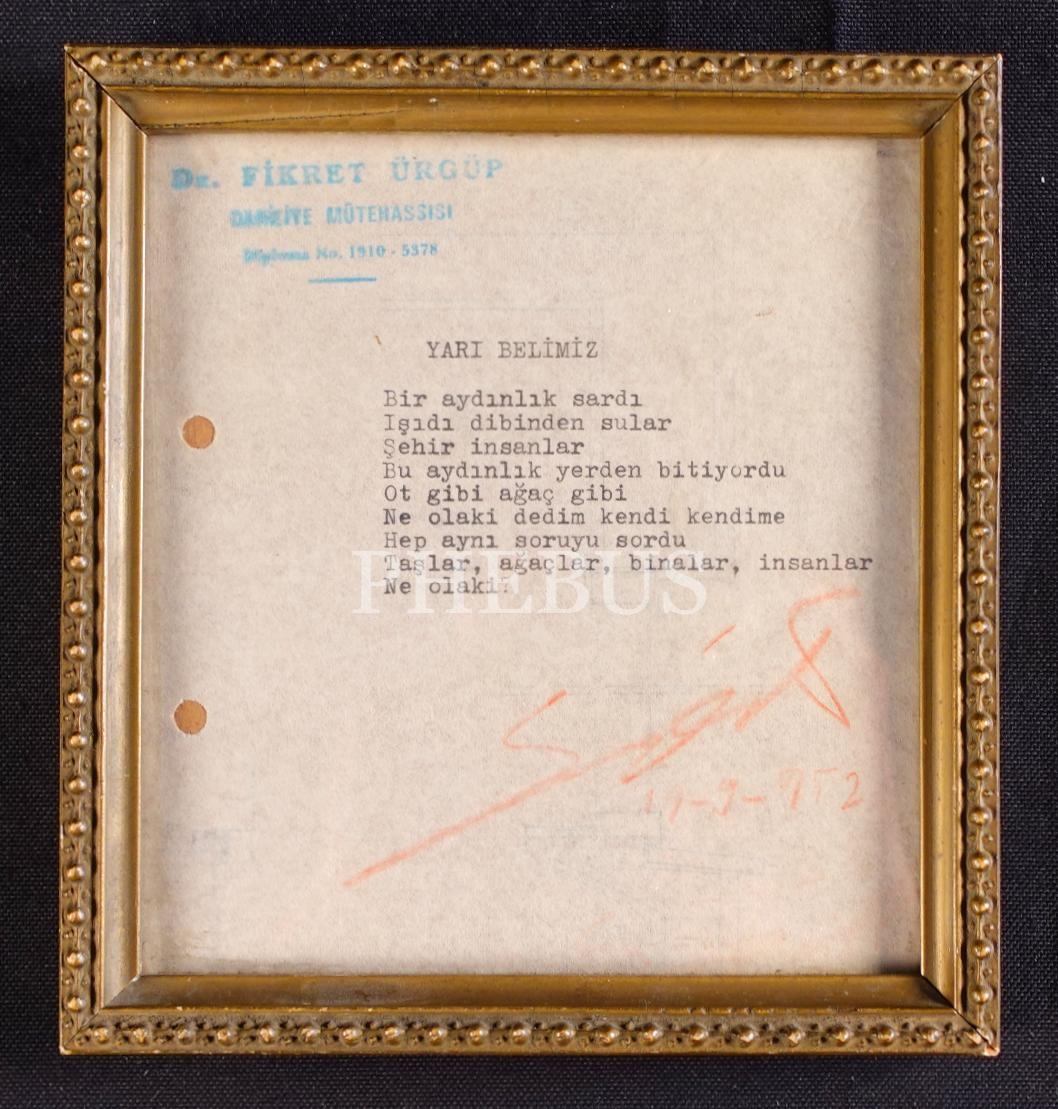 Dr. FİKRET ÜRGÜP
DAHİLİYE MÜTEHASSISI
Diploma No. 1910 - 5378
YARI BELİMİZ
Bir aydınlık sardı
Işıdı dibinden sular
Şehir insanlar
Bu aydınlık yerden bitiyordu
Ot gibi ağaç gibi
Ne olaki dedim kendi kendime
Hep aynı soruyu sordu
Taşlar, ağaçlar, binalar, insanlar
Ne olaki?
PHEBUS